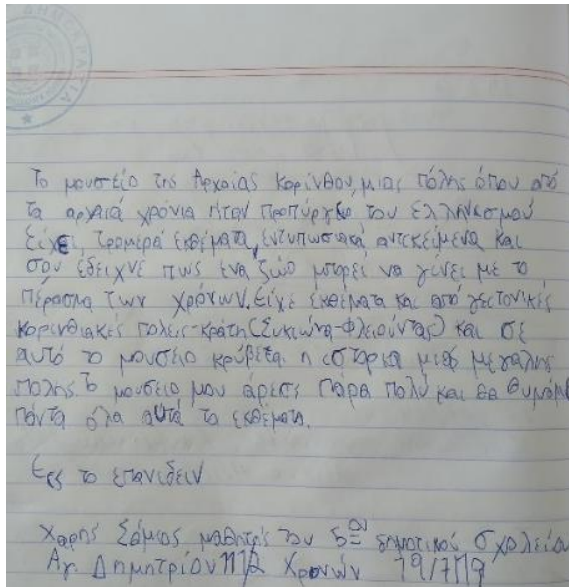 ΔΗΜΟΚΡΑΤΙΑ
Το μουσείο της Αρχαίας Κορίνθου, μιας πόλης όπου από
τα αρχαία χρόνια ήταν προπύργιο του ελληνισμού
είχε, τρομερά εκθέματα, εντυπωσιακά αντεκείμενα και
σου έδειχνε πως ένα ζώο μπορεί να γίνει με το
πέρασμα των χρόνων. Είχε εκθέματα και από γειτονικές
κορινθιακές πόλεις-κράτη (Συκιώνα-Φλειούντας) και σε
αυτό το μουσείο κρύβεται η ιστορία μιας μεγάλης
πόλης. Το μουσείο μου άρεσε πάρα πολύ και θα θυμάμαι
πάντα όλα αυτά τα εκθέματα.
Εις το επανιδείν
Χάρης Σάμιος μαθητής του 5ου δημοτικού σχολείου
Αγ. Δημητρίου 11 1/2 Χρονών 19/7/19